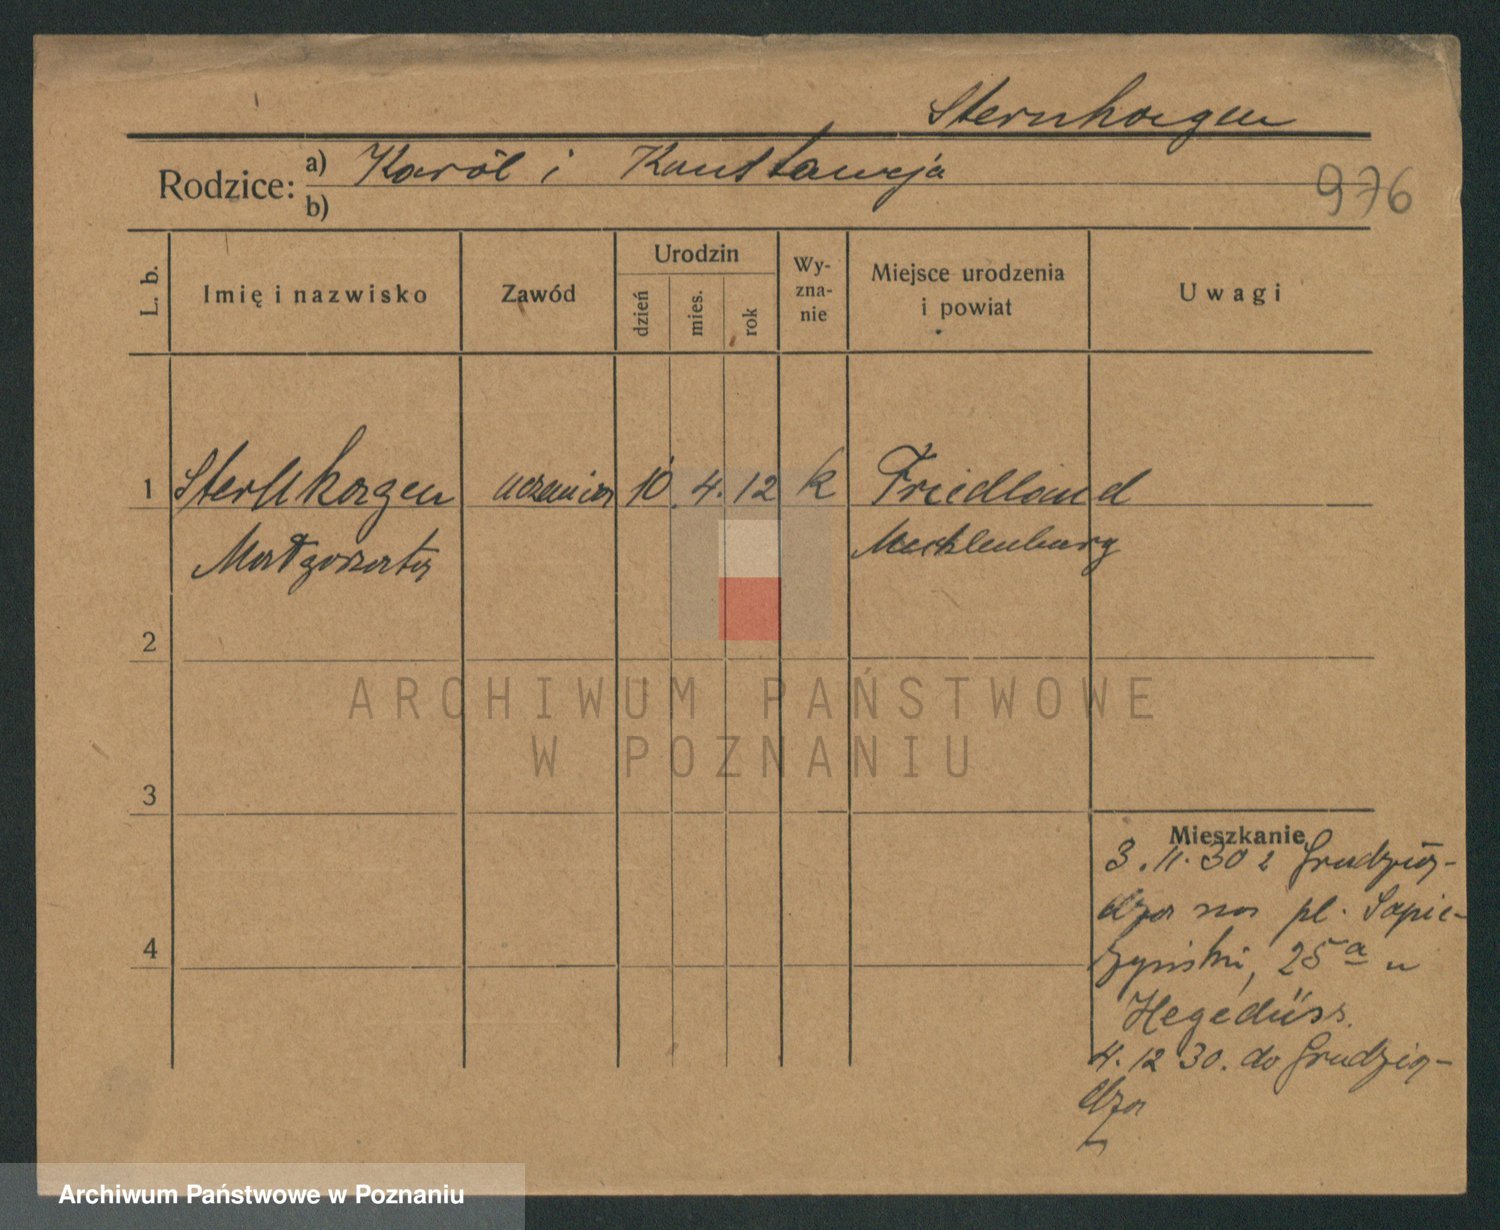 Sternhagen
Rodzice: a) Karól i Konstancja
b)
976
L. b.
Imię i nazwisko
Zawód
Urodzin
dzień
mies.
rok
Wy-
zna-
nie
Miejsce urodzenia
i powiat
Uwagi
1 Sternhagen uczenica 10. 4. 12 k Friedland
Małgorzata Mecklenburg
2
ARCHIWUM PAŃSTWOWE
W POZNANIU
3
Mieszkanie
3. 11. 30 z Grudzią-
dza na pl. Sapie-
4
żyński, 25a u
Hegedüss.
4. 12 30. do Grudzią-
dza
Archiwum Państwowe w Poznaniu